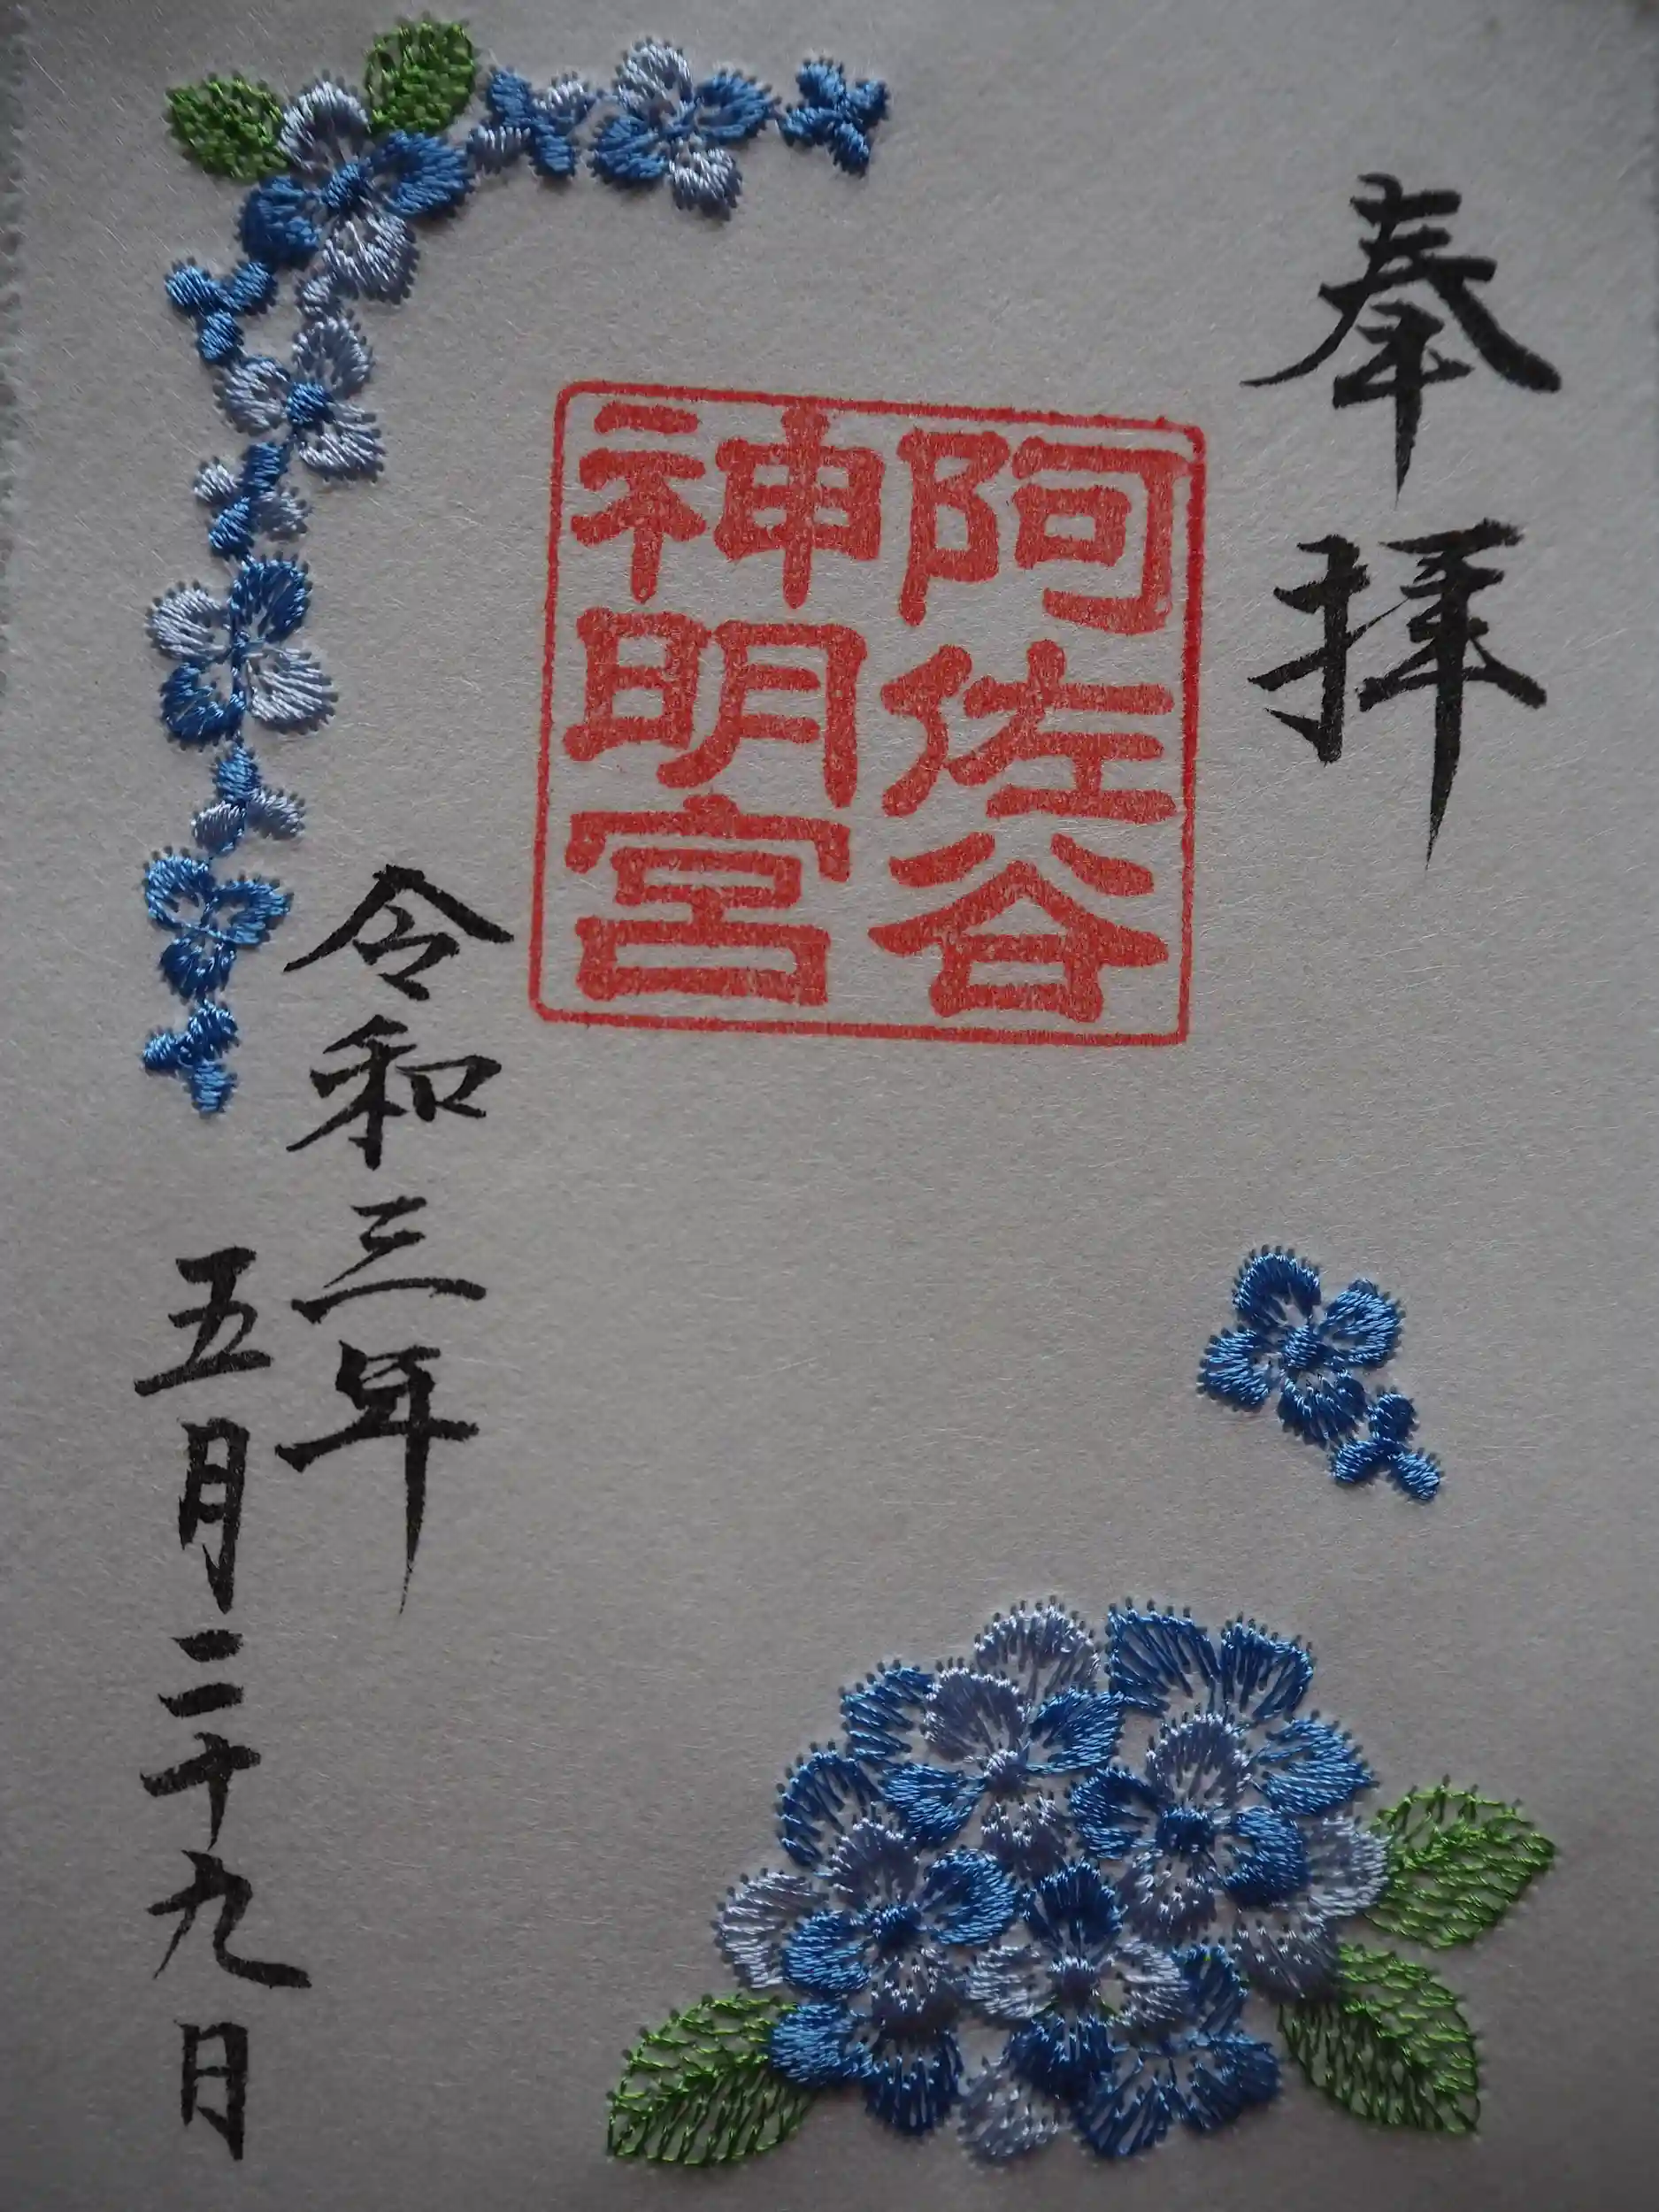 奉拝
阿佐谷
神明宮
令和三年
五月二十九日